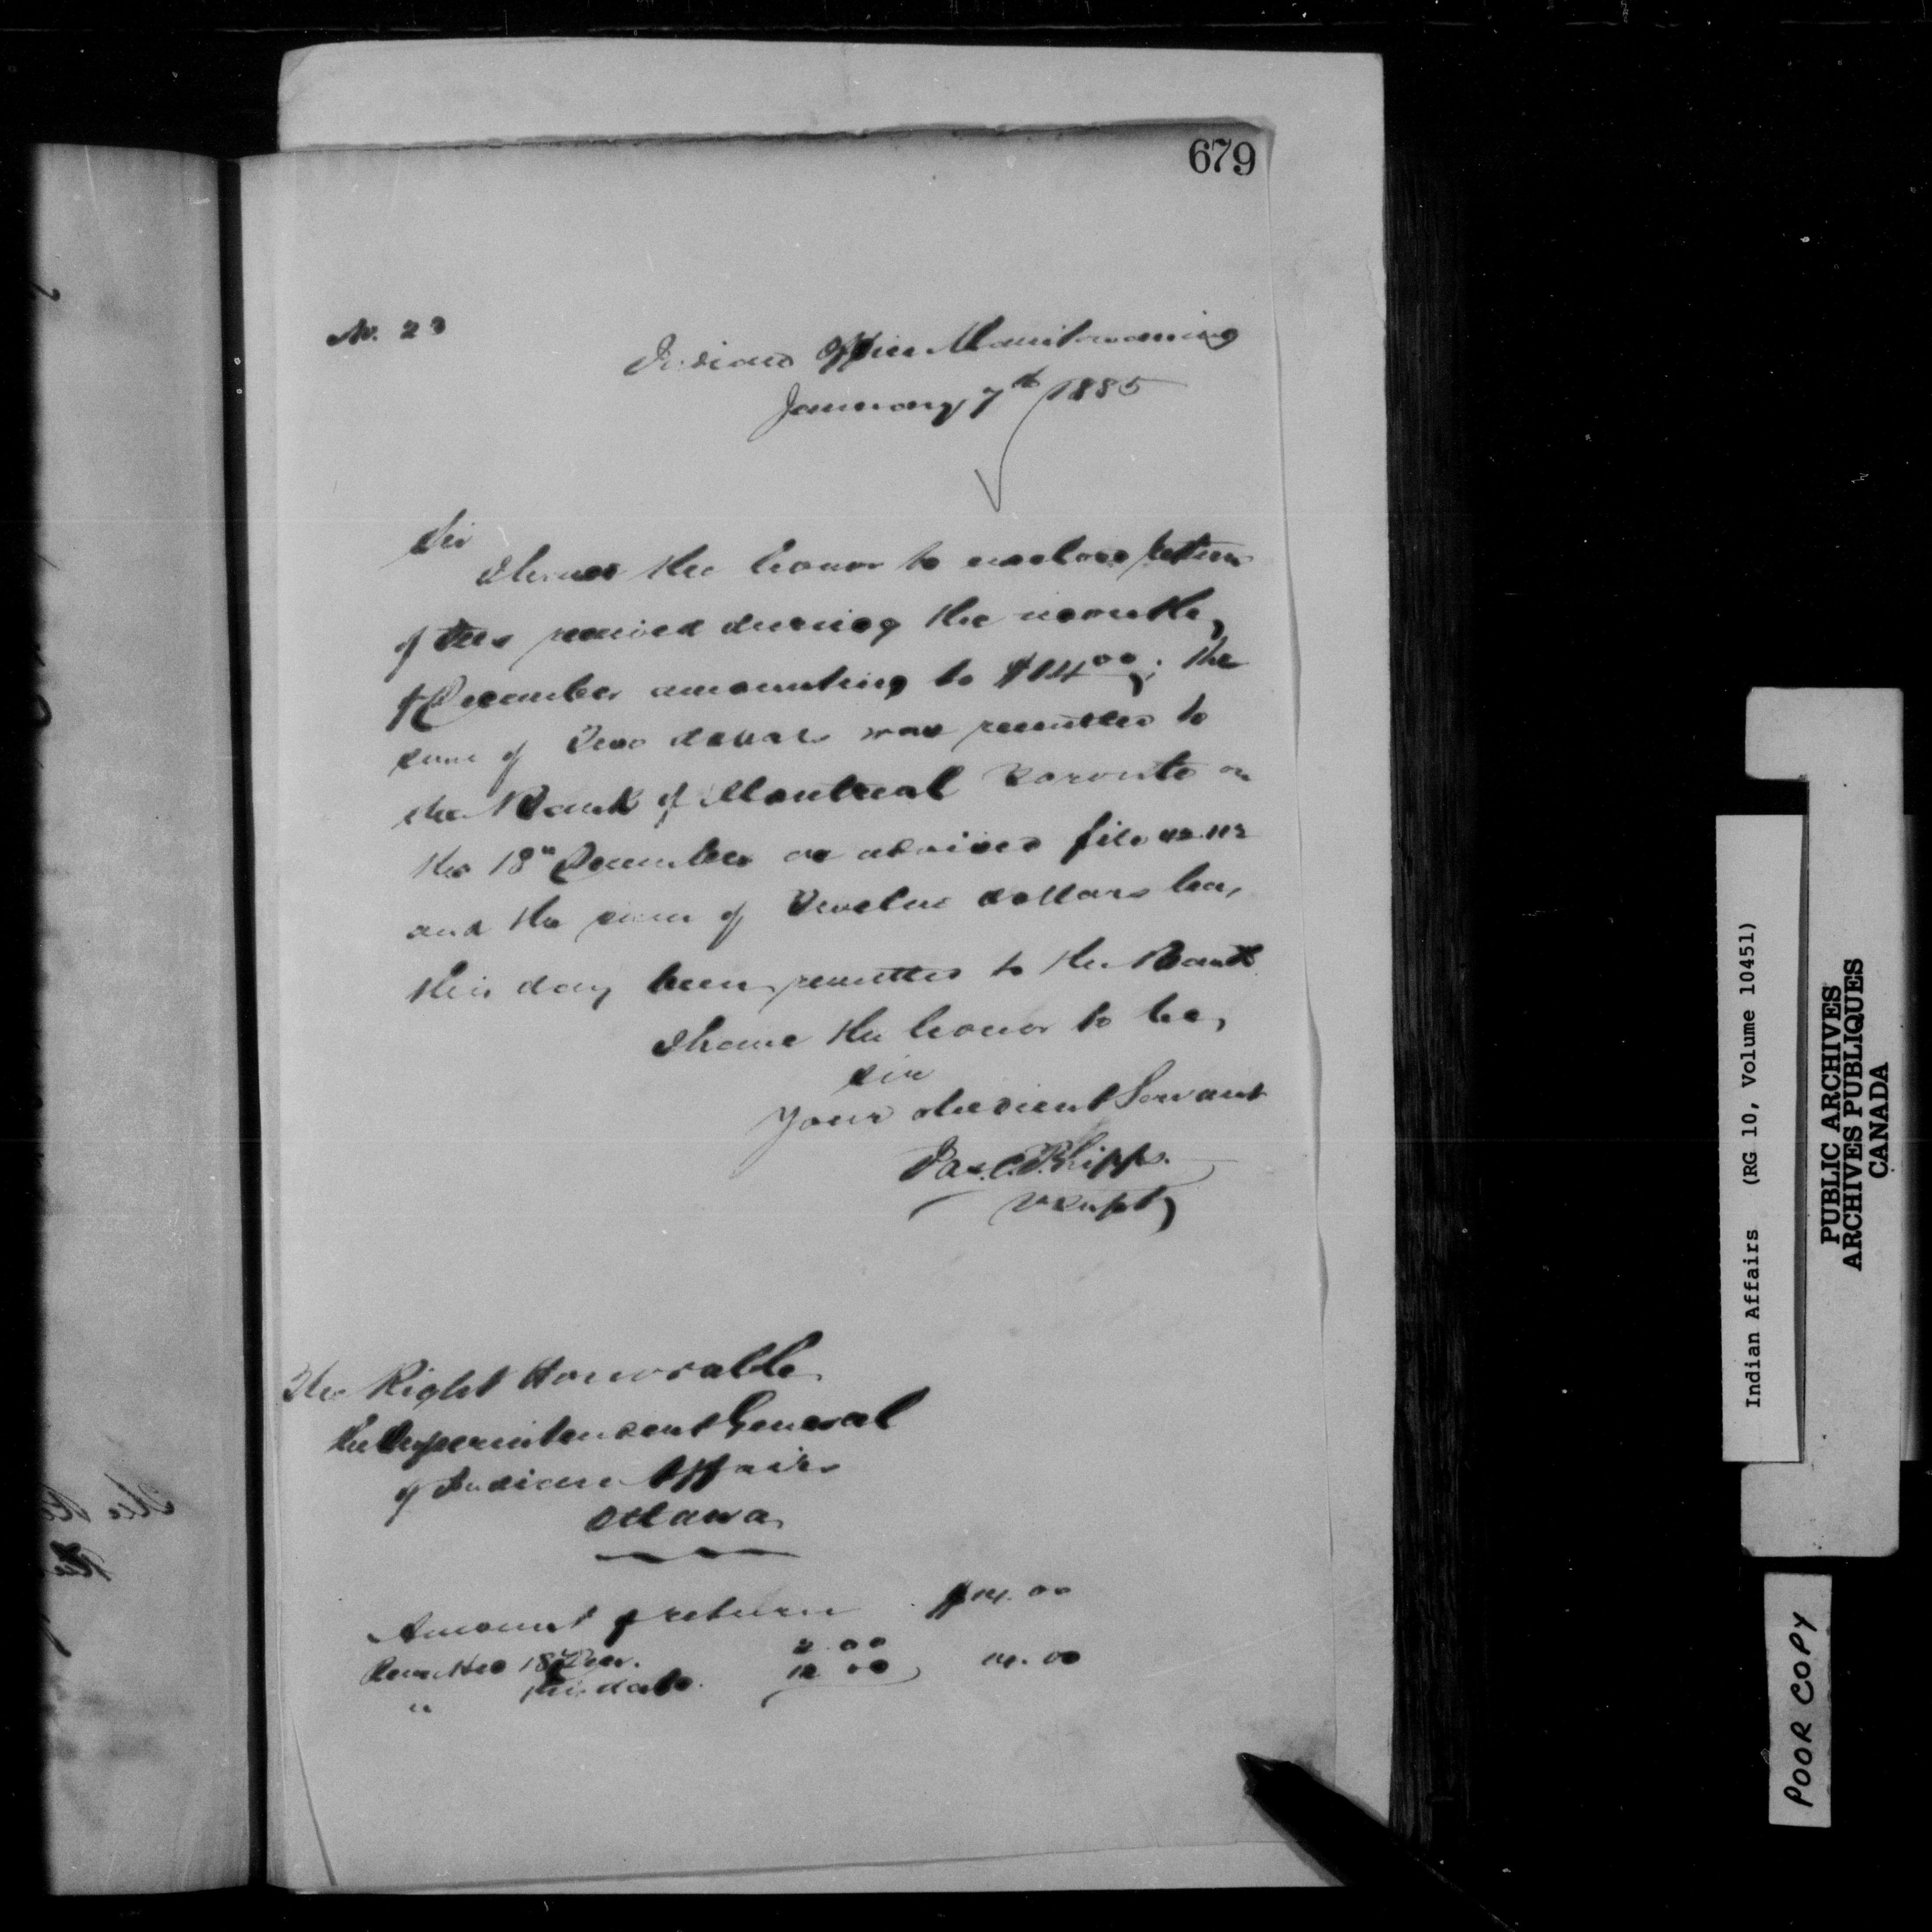 679
No. 23
Indian Office Manitowaning
January 7th 1885
Sir
I have the honor to enclose return
of fees received during the month
of December amounting to $14.00; the
sum of Two dollars was remitted to
the Bank of Montreal Toronto on
the 18th December as advised file
and the sum of Twelve dollars has
this day been remitted to the Bank
I have the honor to be,
Sir
Your obedient Servant
Jas. C. Phipps.
V Supt
The Right Honorable
the Superintendent General
of Indian Affairs
Ottawa
Amount of return $14.00
Remitted 18th Decr. 2.00
" this date. 12 00 14.00
Indian Affairs (RG 10, Volume 10451)
PUBLIC ARCHIVES
ARCHIVES PUBLIQUES
CANADA
POOR COPY